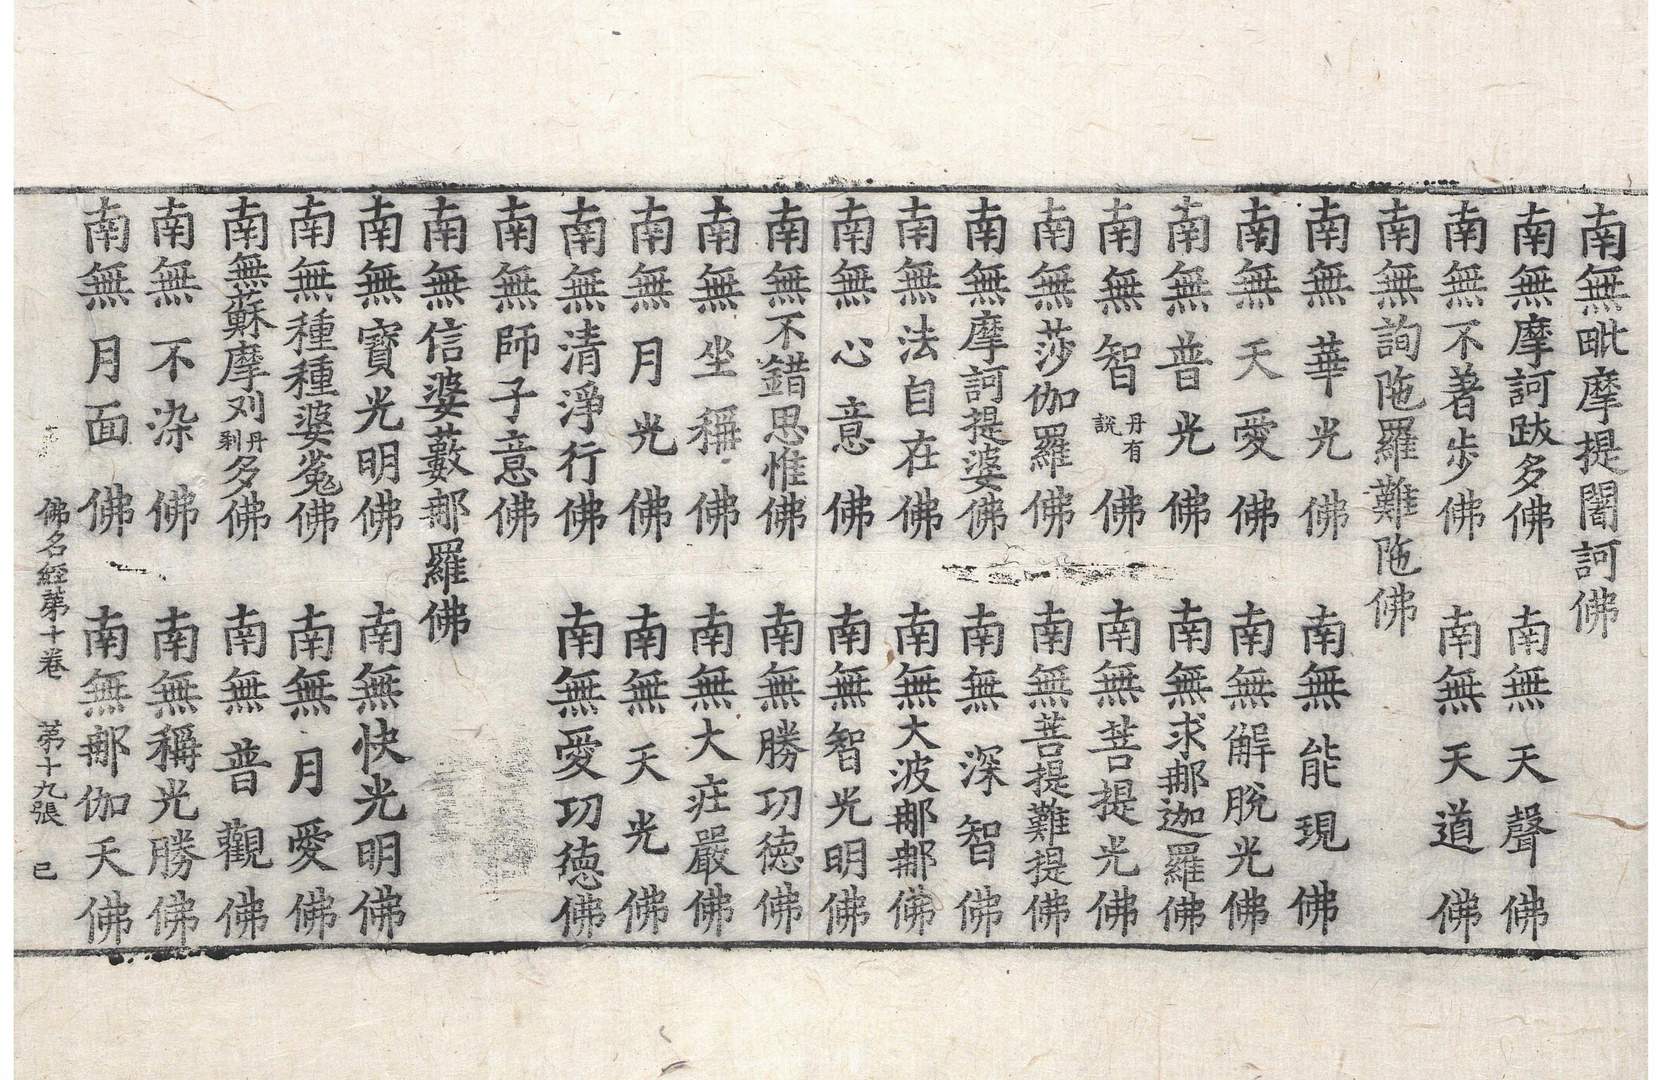 南無毗摩提闍訶佛
南無摩訶跋多佛 南無天聲佛
南無不著步佛 南無天道佛
南無詢陁羅難陁佛
南無華光佛 南無能現佛
南無天愛佛 南無解脫光佛
南無普光佛 南無求那迦羅佛
南無智丹有說佛 南無菩提光佛
南無莎伽羅佛 南無菩提難提佛
南無摩訶提婆佛 南無深智佛
南無法自在佛 南無大波那那佛
南無心意佛 南無智光明佛
南無不錯思惟佛 南無勝功德佛
南無坐稱佛 南無大莊嚴佛
南無月光佛 南無天光佛
南無清淨行佛 南無愛功德佛
南無師子意佛
南無信婆藪那羅佛
南無寶光明佛 南無快光明佛
南無種種婆㝹佛 南無月愛佛
南無蘇摩刈丹刹多佛 南無普觀佛
南無不染佛 南無稱光勝佛
南無月面佛 南無那伽天佛
佛名經第十卷 第十九張 已